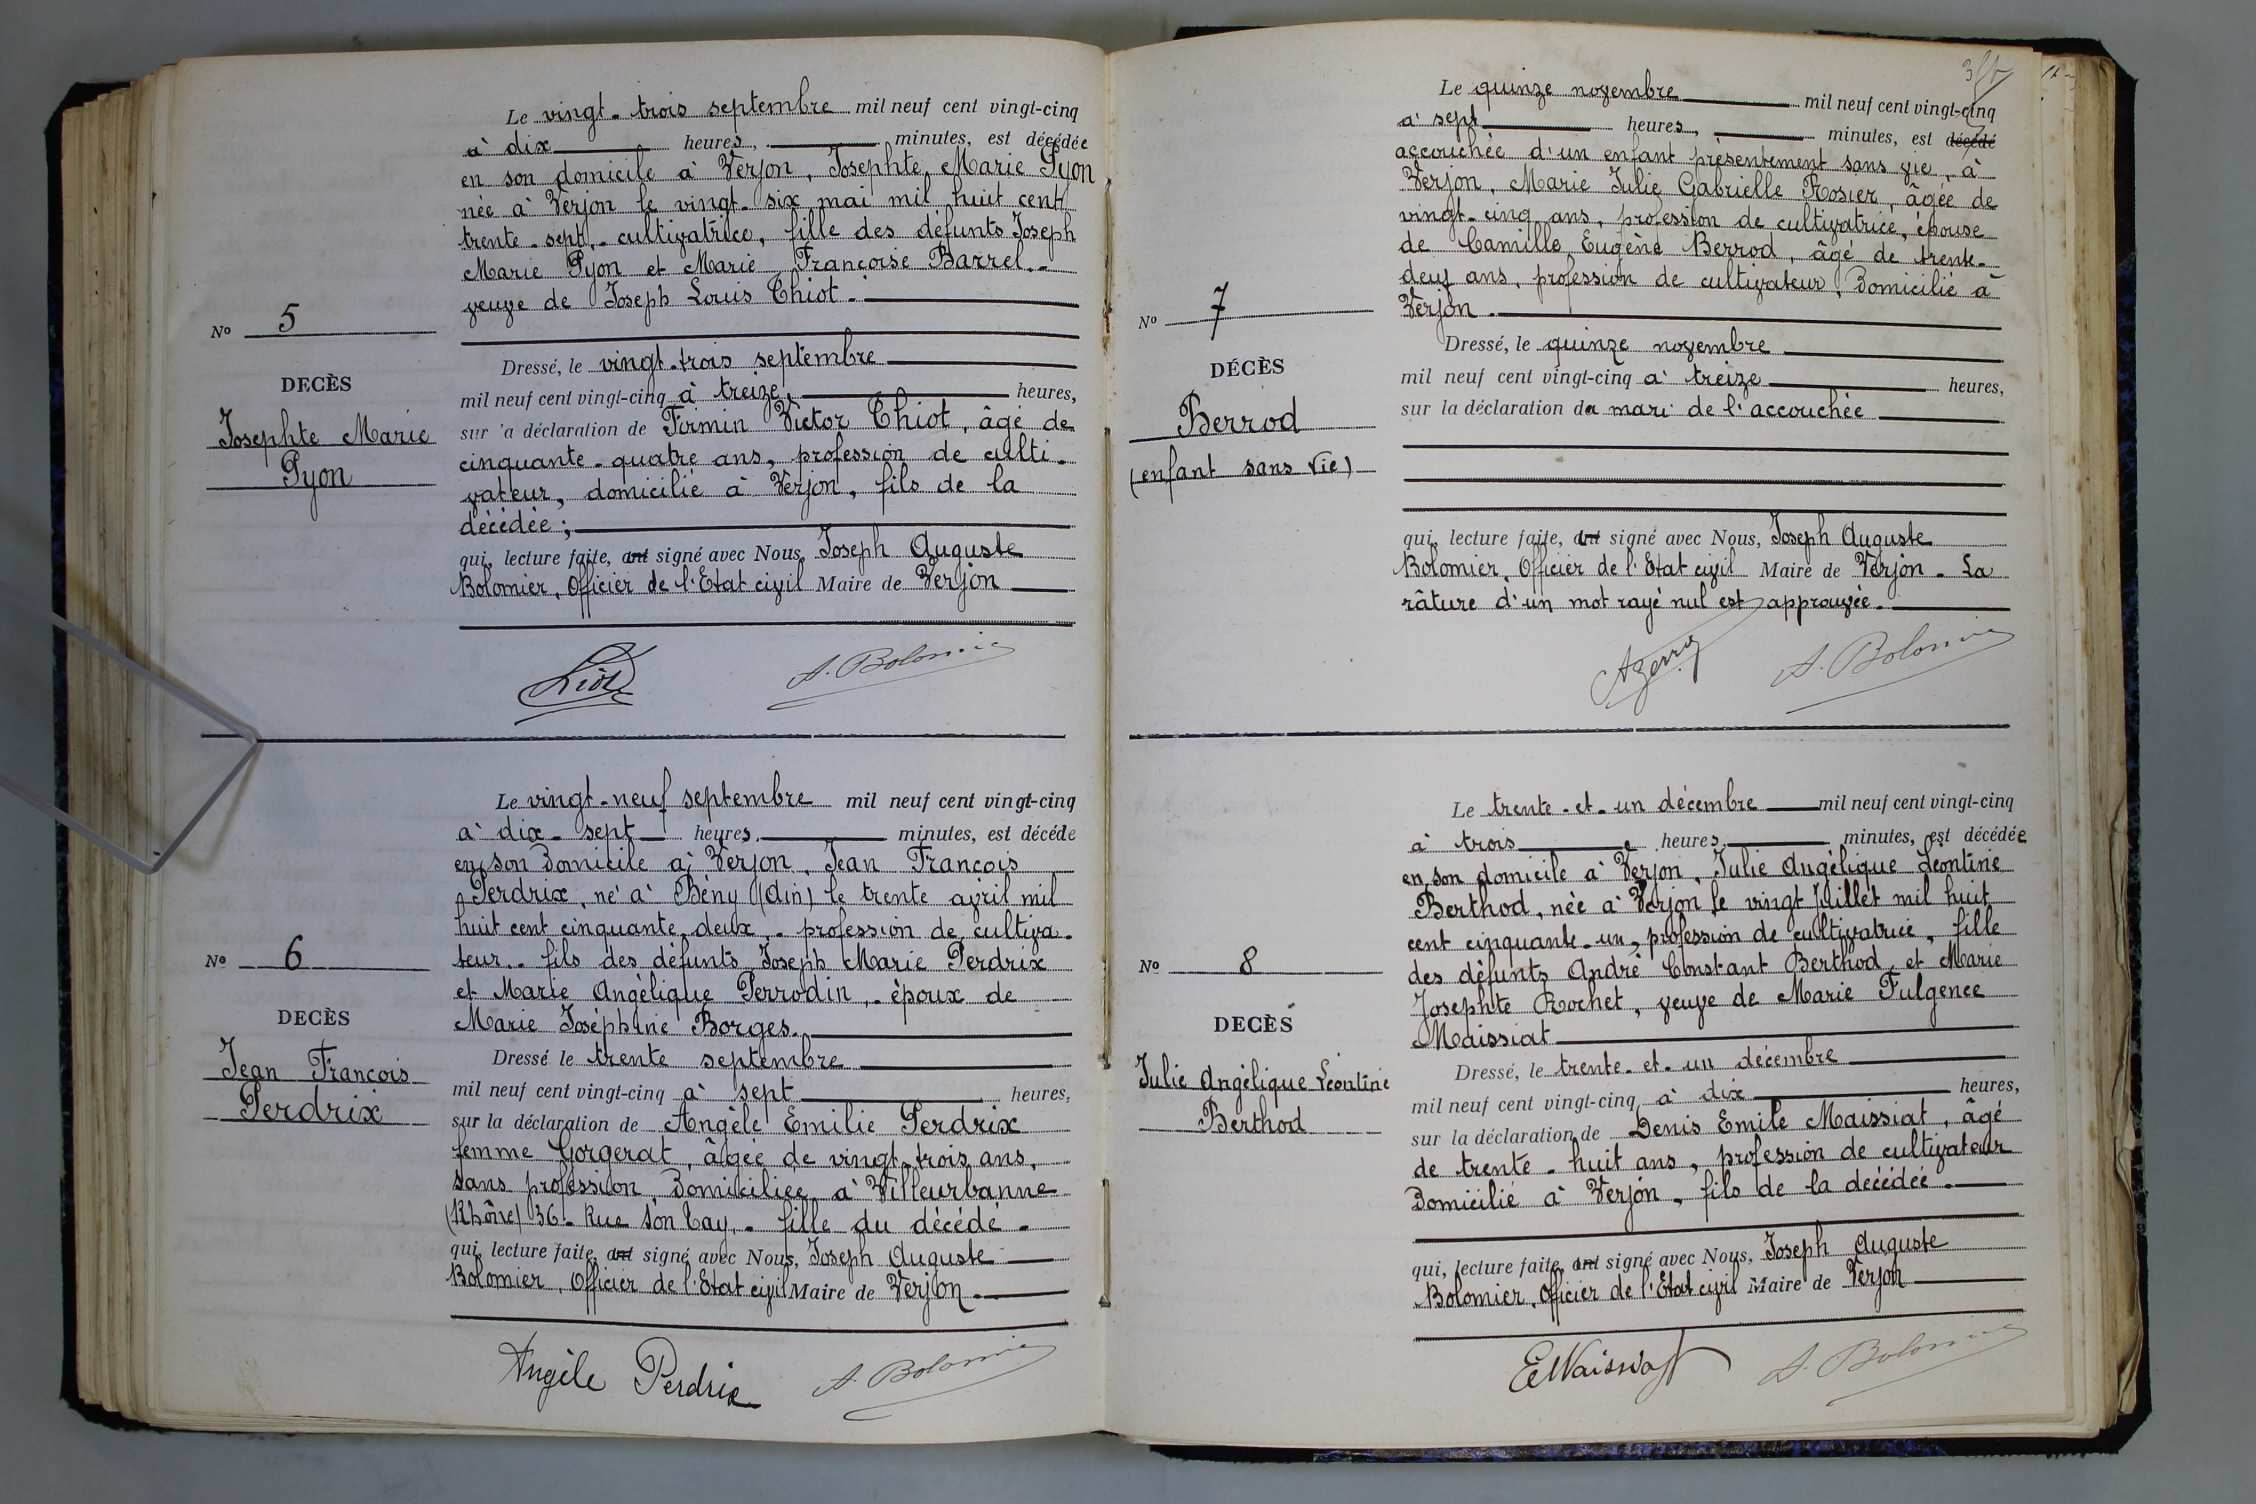 Le vingt-trois septembre mil neuf cent vingt-cinq
à dix heures, minutes, est décédée
en son domicile à Verjon, Josephte Marie Pyon
née à Verjon le vingt-six mai mil huit cent
trente-sept,- cultivatrice, fille des défunts Joseph
Marie Pyon et Marie Françoise Barrel.-
veuve de Joseph Louis Thiot.-
No 5
DECÈS
Josephte Marie
Pyon
Dressé, le vingt-trois septembre
mil neuf cent vingt-cinq à treize, heures,
sur 'a déclaration de Firmin Victor Thiot, âgé de
cinquante-quatre ans, profession de culti-
vateur, domicilié à Verjon, fils de la
décédée;
qui, lecture faite, ont signé avec Nous, Joseph Auguste
Bolomier, Officier de l'Etat civil Maire de Verjon
A. Bolomier
Le vingt-neuf septembre mil neuf cent vingt-cinq
à dix-sept heures, minutes, est décédé
en son domicile à Verjon, Jean François
Perdrix, né à Bény (Ain) le trente avril mil
huit cent cinquante deux,- profession de cultiva-
teur.- fils des défunts Joseph Marie Perdrix
et Marie Angélique Perrodin,- époux de
Marie Joséphine Borges.
No 6
DECÈS
Jean François
Perdrix
Dressé le trente septembre
mil neuf cent vingt-cinq à sept heures,
sur la déclaration de Angèle Emilie Perdrix
femme Gorgerat, âgée de vingt-trois ans,
sans profession, domiciliée à Villeurbanne
(Rhône) 36- Rue Son Tay,- fille du décédé-
qui, lecture faite, ont signé avec Nous, Joseph Auguste
Bolomier, Officier de l'Etat civil Maire de Verjon.
Angèle Perdrix A. Bolomier
Le quinze novembre mil neuf cent vingt-cinq
à sept heures, minutes, est décédé
accouchée d'un enfant présentement sans vie, à
Verjon, Marie Julie Gabrielle Rosier, âgée de
vingt-cinq ans, profession de cultivatrice, épouse
de Camille Eugène Berrod, âgé de trente-
deux ans, profession de cultivateur, domicilié à
Verjon.
No 7
DÉCÈS
Berrod
(enfant sans vie)
Dressé, le quinze novembre
mil neuf cent vingt-cinq à treize heures,
sur la déclaration du mari de l'accouchée
qui, lecture faite, ont signé avec Nous, Joseph Auguste
Bolomier, Officier de l'Etat civil Maire de Verjon- La
râture d'un mot rayé nul est approuvée.
A. Bolomier
Le trente-et-un décembre mil neuf cent vingt-cinq
à trois heures, minutes, est décédée
en son domicile à Verjon, Julie Angélique Léontine
Berthod, née à Verjon le vingt Juillet mil huit
cent cinquante-un, profession de cultivatrice, fille
des défunts André Constant Berthod et Marie
Josephte Rochet, veuve de Marie Fulgence
Maissiat
No 8
DECÈS
Julie Angélique Léontine
Berthod
Dressé, le trente-et-un décembre
mil neuf cent vingt-cinq à dix heures,
sur la déclaration de Denis Emile Maissiat, âgé
de trente-huit ans, profession de cultivateur
domicilié à Verjon, fils de la décédée.
qui, lecture faite, ont signé avec Nous, Joseph Auguste
Bolomier, Officier de l'Etat civil Maire de Verjon
E Maissiat A. Bolomier